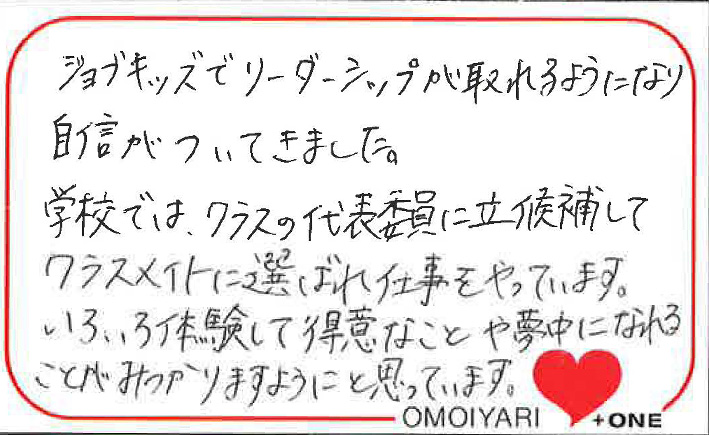 ジョブキッズでリーダーシップが取れるようになり
自信がついてきました。
学校では、クラスの代表委員に立候補して
クラスメイトに選ばれ仕事をやっています。
いろいろ体験して得意なことや夢中になれる
ことがみつかりますようにと思っています。
OMOIYARI +ONE